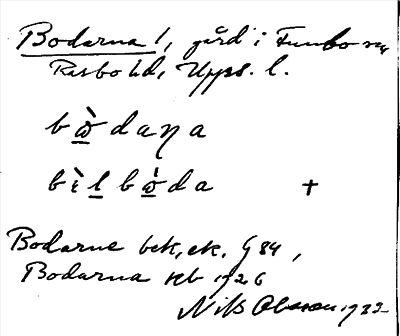 Bodarna!, gård i Funbo sn
Rasbo hd, Upps. l.
bὼdaṇa
bὶl bὼda +
Bodarne bek, ek. G 84,
Bodarna
Nils Olsson 1932